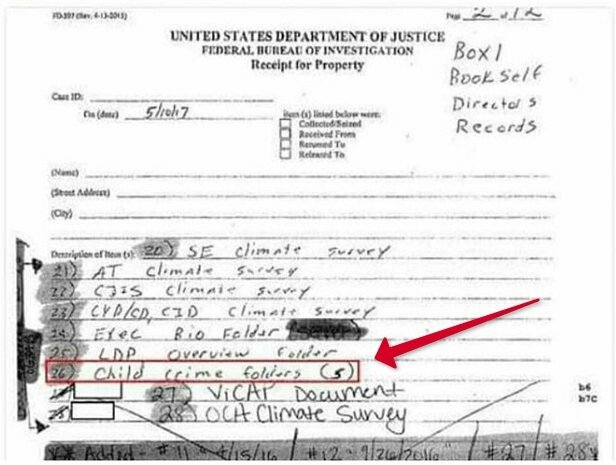 FD-597 (Rev. 4-13-2015)
Page 2 of 12
UNITED STATES DEPARTMENT OF JUSTICE
FEDERAL BUREAU OF INVESTIGATION
Receipt for Property
Box 1
Book Self
Director's
Records
Case ID:
On (date) 5/10/17
item (s) listed below were:
Collected/Seized
Received From
Returned To
Released To
(Name)
(Street Address)
(City)
Description of Item (s): 20) SE climate survey
21) AT Climate survey
22) CJIS Climate survey
23) CYD/CD, CID Climate survey
24) Exec Bio Folder
25) LDP Overview Folder
26) Child crime folders (5)
27) ViCAP Document
b6
28) OCA Climate Survey
b7C
** Added - #11 - 4/15/16 / #12 - 9/26/2016 / #27 / #28